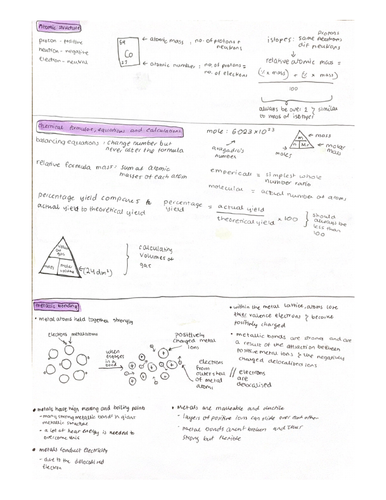 Atomic structure
proton - positive
neutron - negative
electron - neutral
Co
← atomic mass, no. of protons + neutrons
← atomic number, no. of protons = no. of electrons
isotopes: same protons
diff neutrons
relative atomic mass =
(% x mass) + (% x mass)
100
always be over 1 & similar
to mass of isotope!
Chemical formulae, equations and calculations
balancing equations - change number but
never alter the formula
relative formula mass - sum of atomic
masses of each atom
percentage yield compares
actual yield to theoretical yield
percentage yield = actual yield
theoretical yield x 100
should always be
less than
100
mole: 6.023 x 10²³
avogadro's
number
mass
molar mass
moles
empirical = simplest whole
number ratio
molecular = actual number of atoms
(24dm³)
calculating
volumes of
gas
metallic bonding
• metal atoms held together strongly
when
positively
charged metal
ions
electron
from
outer shell
of metal
atoms
• within the metal lattice, atoms lose
their valence electrons & become
positively charged
• metallic bonds are strong and are
a result of the attraction between
positive metal ions & the negatively
charged delocalised ions
electrons
are
delocalised
• metals have high melting and boiling points
- many strong metallic bonds in giant
metallic structure
- a lot of heat energy is needed to
overcome this
• metals conduct electricity
- due to the delocalised
electron
• Metals are malleable and ductile
- layers of positive ions can slide over each other
- metal bonds aren't broken and stay
strong but flexible